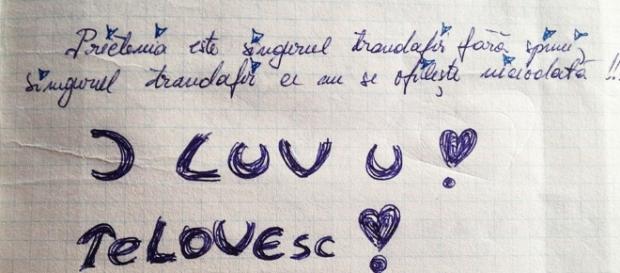 Prietenia este singurul trandafir fără spini,
singurul trandafir ce nu se ofilește niciodată !!!
I LUV U !
TeLOVESC !